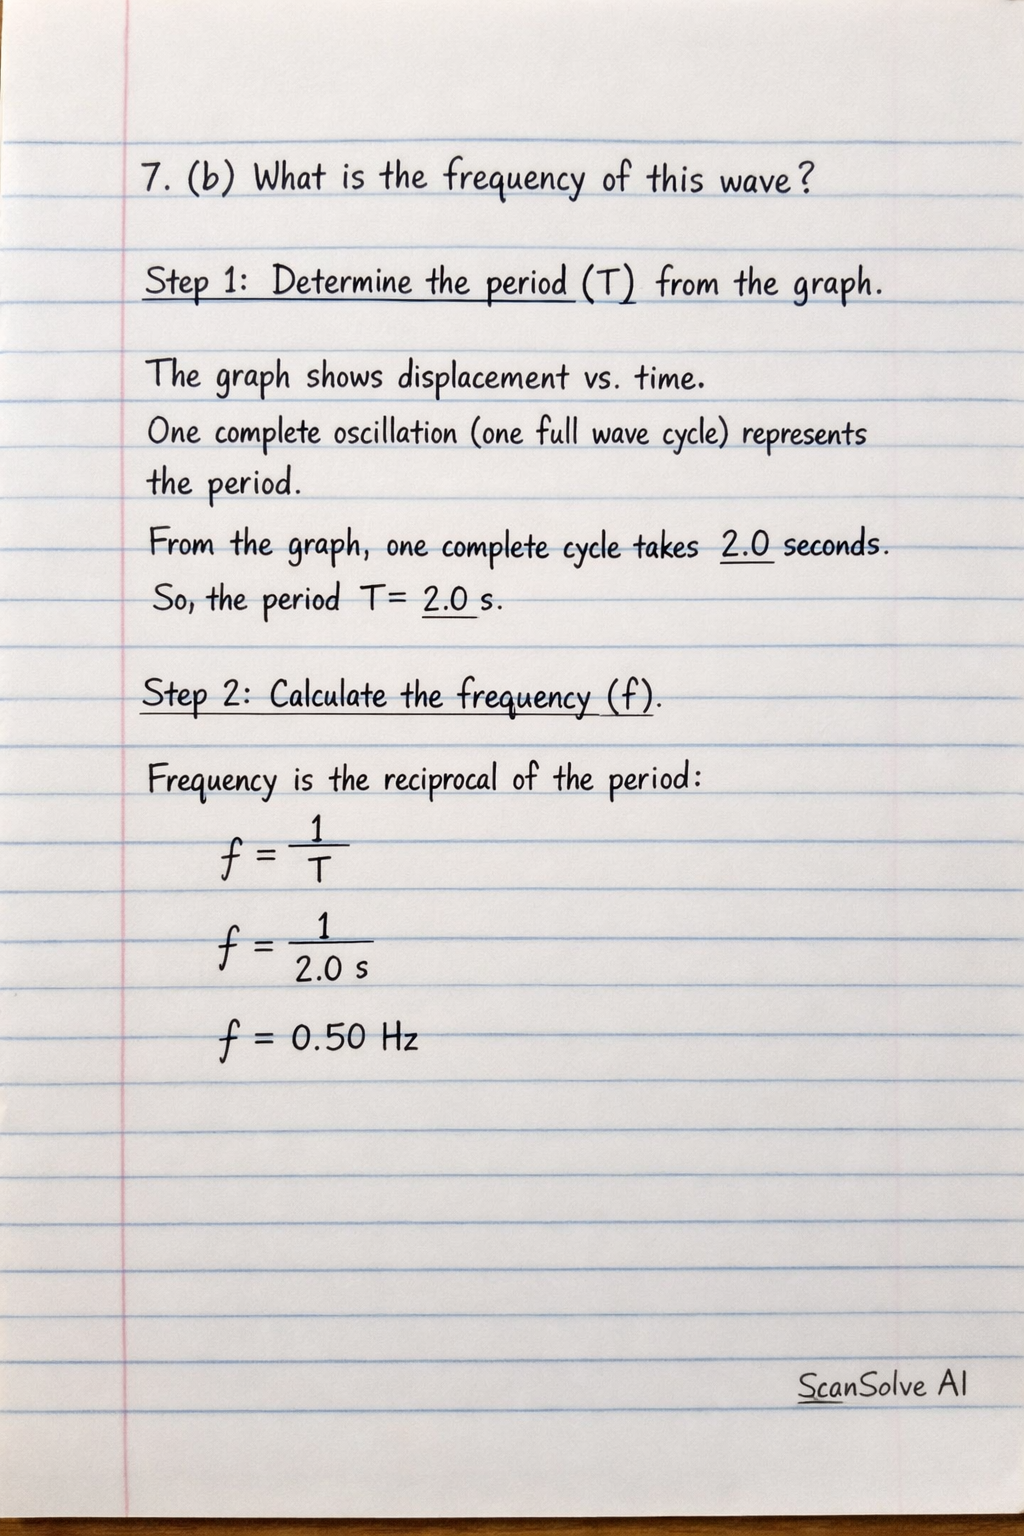 7. (b) What is the frequency of this wave?
Step 1: Determine the period (T) from the graph.
The graph shows displacement vs. time.
One complete oscillation (one full wave cycle) represents
the period.
From the graph, one complete cycle takes 2.0 seconds.
So, the period T = 2.0 s.
Step 2: Calculate the frequency (f).
Frequency is the reciprocal of the period:
f = 1/T
f = 1/2.0 s
f = 0.50 Hz
ScanSolve AI